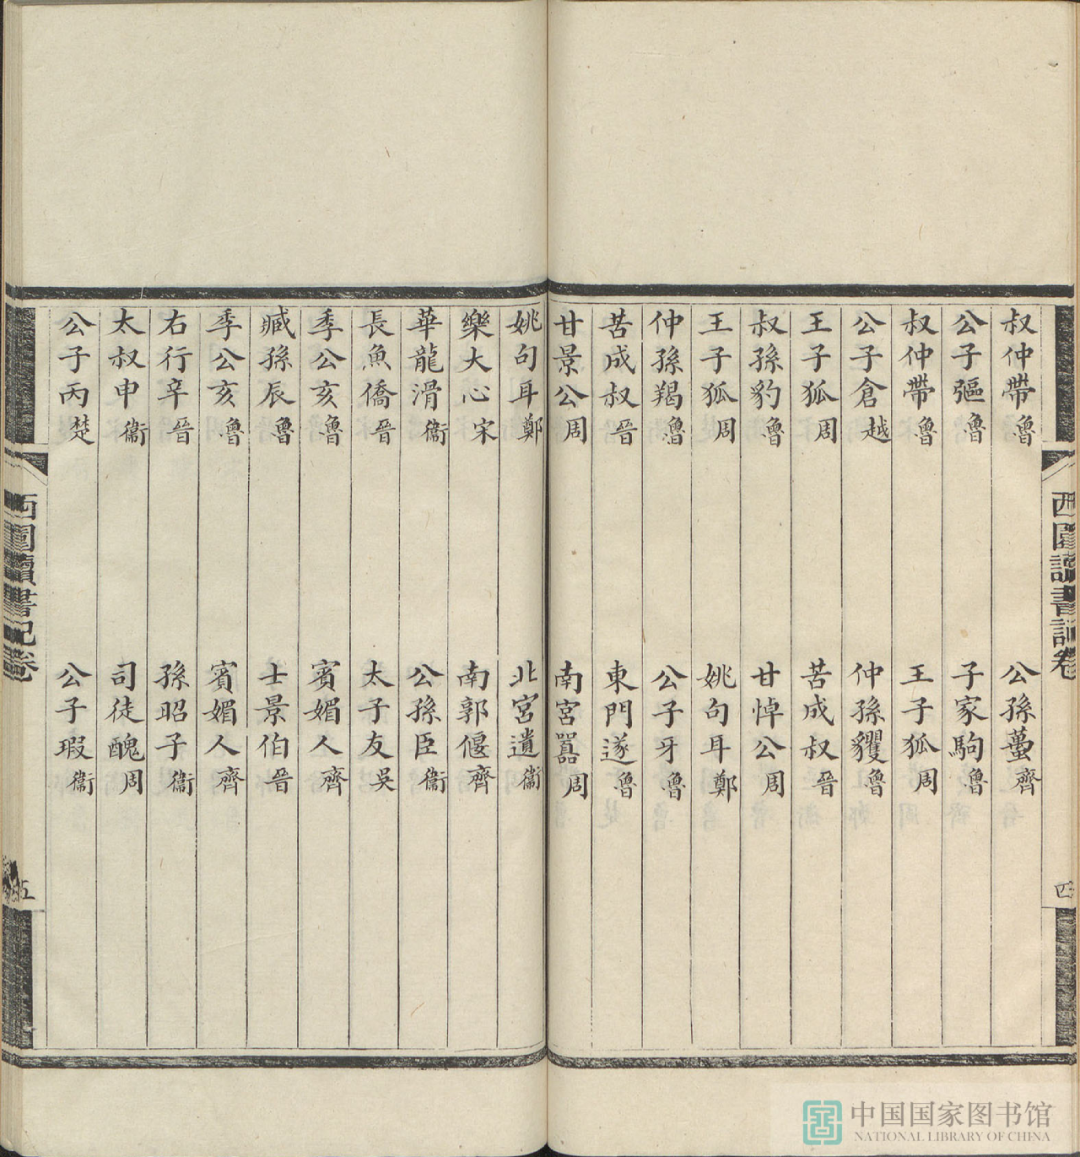 西圃讀書記卷
四
叔仲帶魯 公孫蠆齊
公子彄魯 子家駒魯
叔仲帶魯 王子狐周
公子倉越 仲孫貜魯
王子狐周 苦成叔晉
叔孫豹魯 甘悼公周
王子狐周 姚句耳鄭
仲孫羯魯 公子牙魯
苦成叔晉 東門遂魯
甘景公周 南宮嚚周
姚句耳鄭 北宮遺衞
樂大心宋 南郭偃齊
華龍滑衞 公孫臣衞
長魚僑晉 太子友吳
季公亥魯 賓媚人齊
臧孫辰魯 士景伯晉
季公亥魯 賓媚人齊
右行辛晉 孫昭子衞
太叔申衞 司徒醜周
公子丙楚 公子瑕衞
西圃讀書記卷
五
中国国家图书馆
NATIONAL LIBRARY OF CHINA